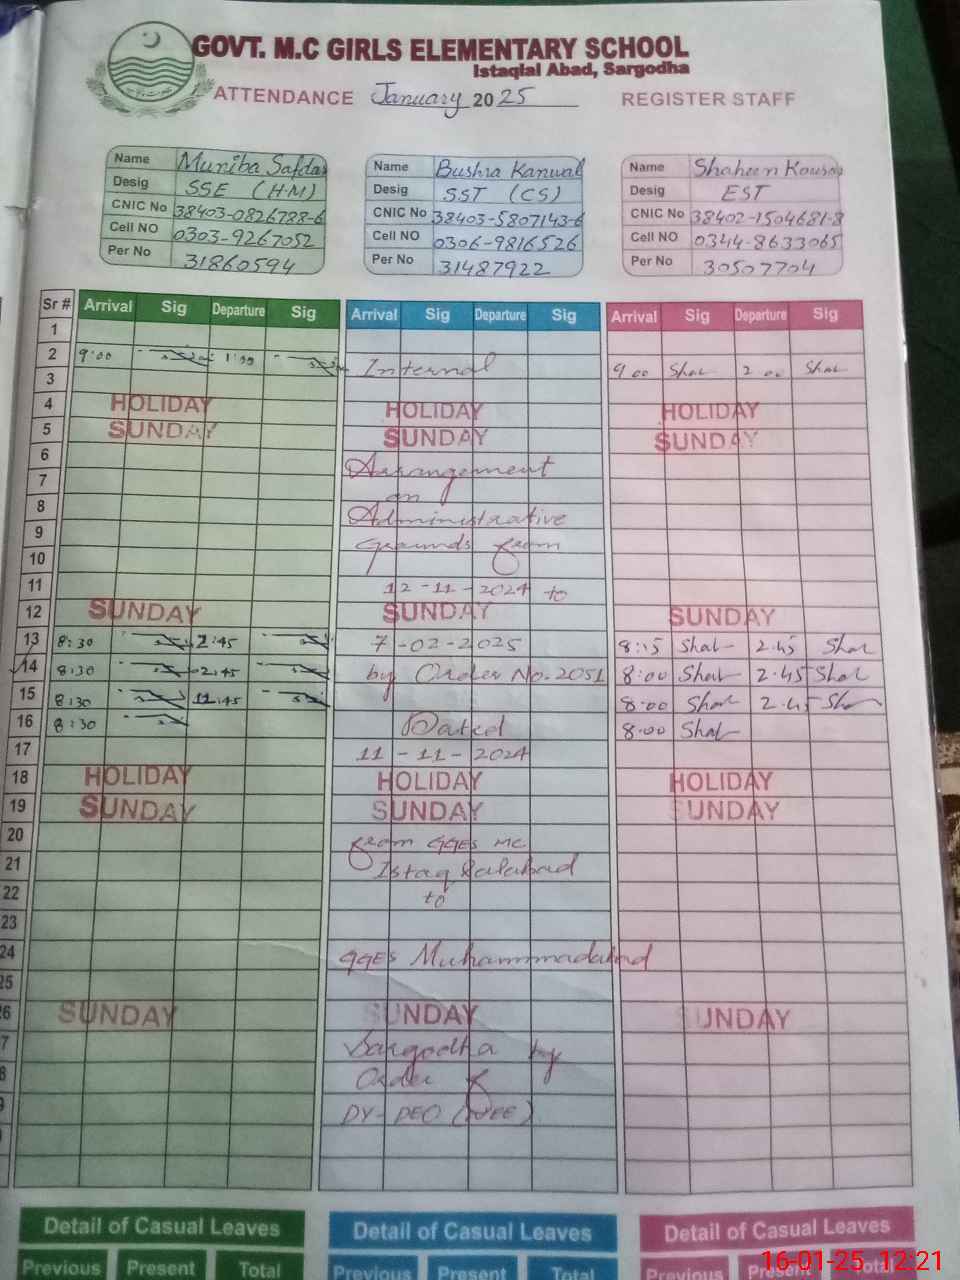 GOVT. M.C GIRLS ELEMENTARY SCHOOL
Istaqlal Abad, Sargodha
ATTENDANCE January 2025 REGISTER STAFF
Name Muniba Safdar
Desig SSE (HM)
CNIC No 38403-0826788-6
Cell NO 0303-9267052
Per No 31860594
Name Bushra Kanwal
Desig SST (CS)
CNIC No 38403-5807143-6
Cell NO 0306-9816526
Per No 31487922
Name Shaheen Kousar
Desig EST
CNIC No 38402-1504681-8
Cell NO 0344-8633065
Per No 30507704
Sr # Arrival Sig Departure Sig Arrival Sig Departure Sig Arrival Sig Departure Sig
1
2 9:00 Internal 9 00 Shah 2 00 Shah
3
4 HOLIDAY HOLIDAY HOLIDAY
5 SUNDAY SUNDAY SUNDAY
6 Arrangement
7 on
8 Administrative
9 grounds from
10
11 12-11-2024 to
12 SUNDAY SUNDAY SUNDAY
13 8:30 2:45 7-02-2025 8:15 Shah 2.45 Shah
14 8:30 2:45 by Order No. 2051 8:00 Shah 2.45 Shah
15 8:30 11:45 8:00 Shah 2.45 Shah
16 8:30 Dated 8:00 Shah
17 11-11-2024
18 HOLIDAY HOLIDAY HOLIDAY
19 SUNDAY SUNDAY SUNDAY
20 from GGES MC
21 Istaqlalabad
22 to
23
24 GGES Muhammadabad
25
26 SUNDAY SUNDAY SUNDAY
7 Sargodha by
8 Order of
9 DY-DEO (WEE)
Detail of Casual Leaves Detail of Casual Leaves Detail of Casual Leaves
Previous Present Total Previous Present Total Previous Present Total
16-01-25 12:21